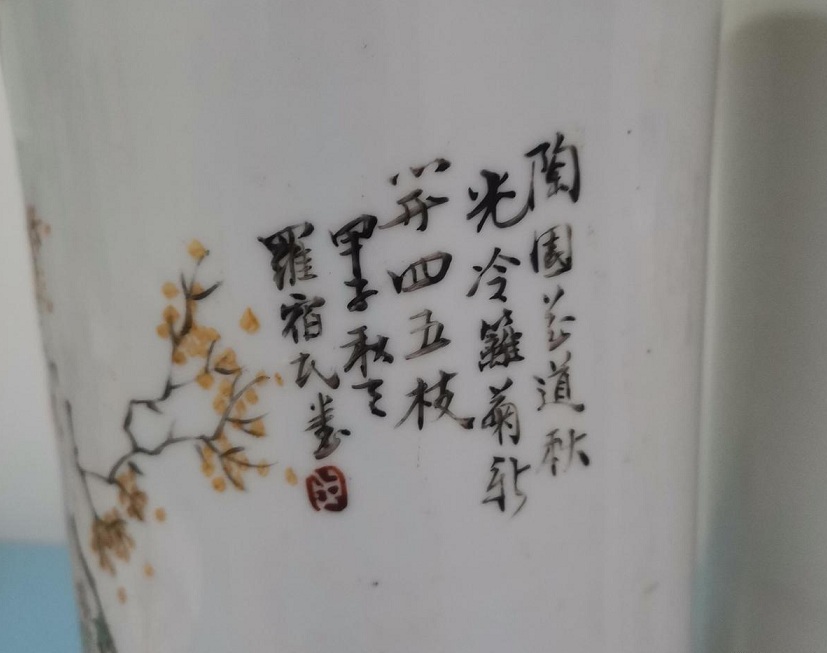 陶園莫道秋
光冷籬菊新
開四五枝
甲子秋之
羅宿民畫